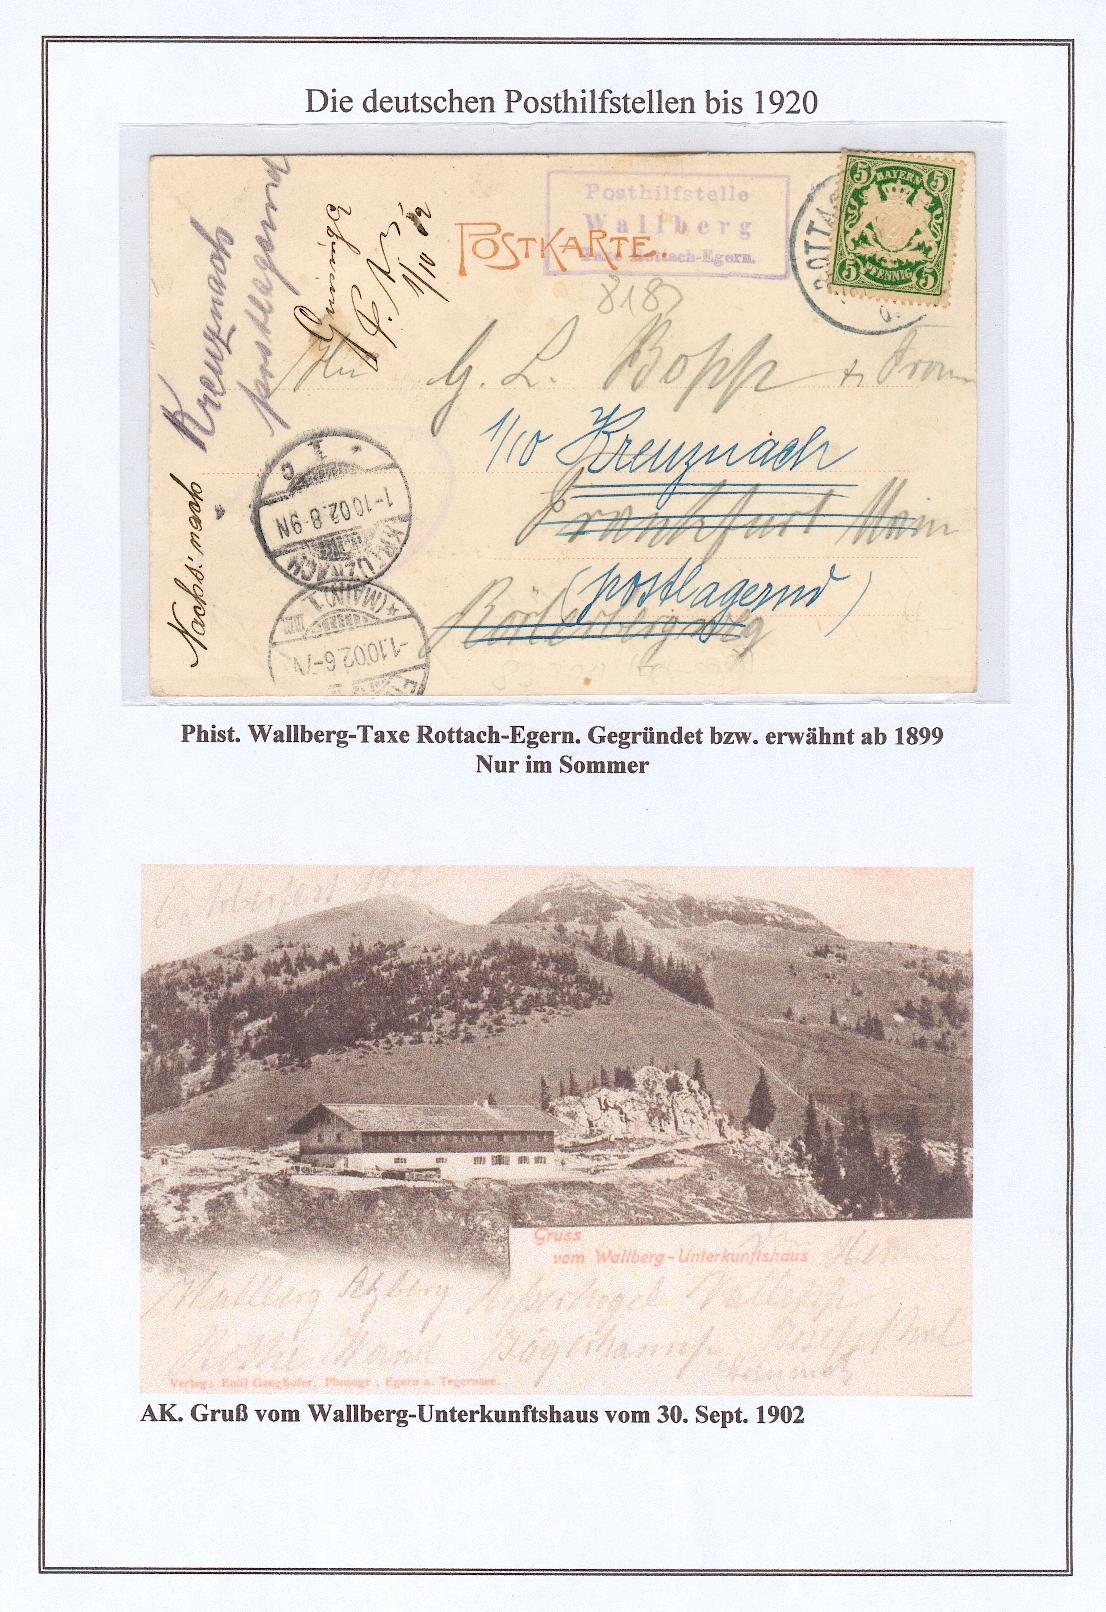 Die deutschen Posthilfstellen bis 1920
Kreuznach
postlagernd
1/10 02
POSTKARTE.
Posthilfstelle
Wallberg
Taxe Rottach-Egern.
5 BAYERN 5
5 PFENNIG 5
ROTTAC
8187
G. L. Bopp
1/10 Kreuznach
Frankfurt Main
(postlagernd)
Nachs: nach
KREUZNACH
1-10.02.8-9N
(MAIN) 1
-1.1002.6-7N
Phist. Wallberg-Taxe Rottach-Egern. Gegründet bzw. erwähnt ab 1899
Nur im Sommer
Octoberfest 1902
Gruss
vom Wallberg-Unterkunftshaus
Wallberg Setzberg Risserkogel Vallepp
Rothe Wand Jägerkamp
Verlag: Emil Ganghofer, Photogr., Egern a. Tegernsee.
AK. Gruß vom Wallberg-Unterkunftshaus vom 30. Sept. 1902